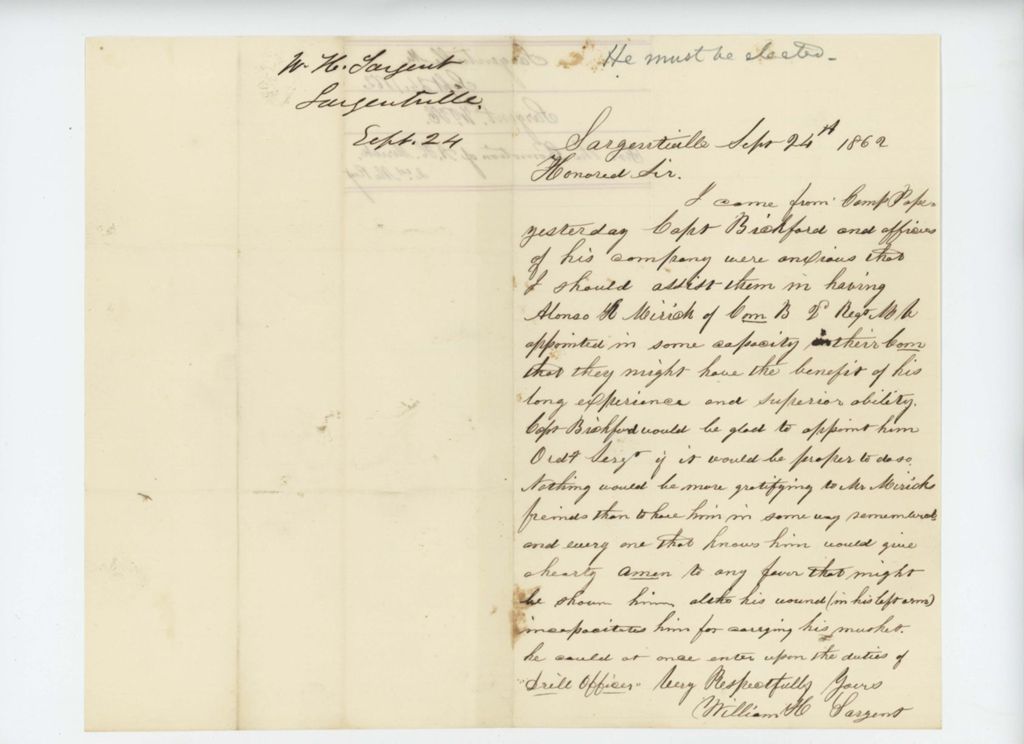 W. H. Sargent
Sargentville.
Sept. 24
He must be elected.
Sargentville Sept 24th 1862
Honored Sir.
I came from Camp Pope
yesterday Capt Bickford and officers
of his company were anxious that
I should assist them in having
Alonso H Mirick of Com B 2d Regt Me
appointed in some capacity in their Com
that they might have the benefit of his
long experience and superior ability.
Capt Bickford would be glad to appoint him
Ord Sergt if it would be proper to do so.
Nothing would be more gratifying to Mr Miricks
freinds than to have him in some way remembered
and every one that knows him would give
a hearty amen to any favor that might
be shown him altho his wound (in his left arm)
incapacitates him for carrying his musket.
he could at once enter upon the duties of
Drill Officer. Very Respectfully Yours
William H Sargent